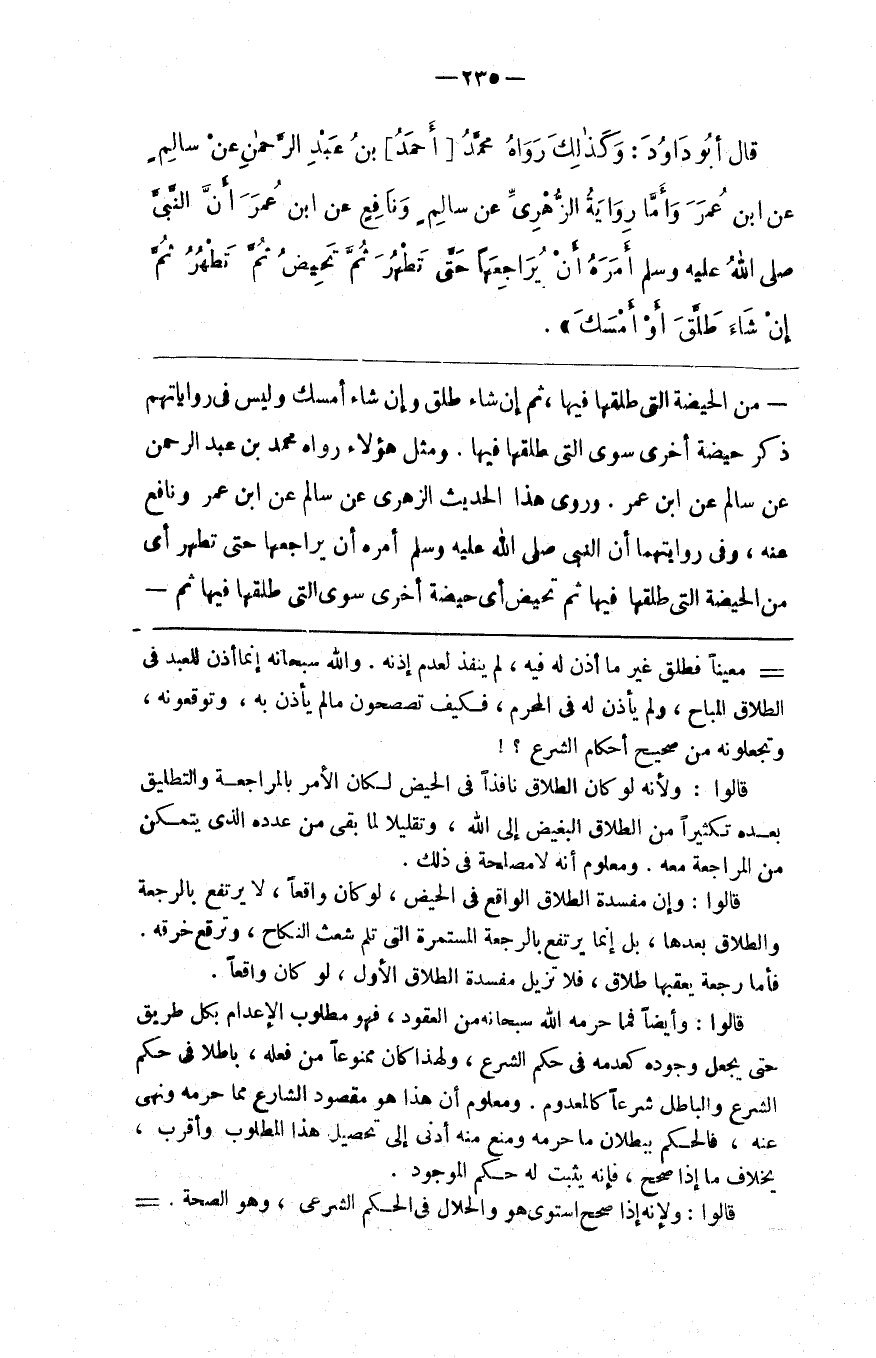 — ٢٣٥ —
قال أبُو دَاوُدَ : وَكَذٰلِكَ رَوَاهُ مُحمَّدُ [ أَحمَدُ ] بنُ عَبْدِ الرَّحمٰنِ عنْ سالِمٍ
عن ابن عُمرَ وَأَمَّا رِوَايَةُ الزُّهْرِىِّ عن سالِمٍ وَنَافِعٍ عن ابن عُمرَ أَنَّ النَّبىَّ
صلى اللهُ عليه وسلم أَمَرَهُ أَنْ يُرَاجِعَهَا حَتَّى تَطْهُرَ ثُمَّ تَحِيضُ ثُمَّ تَطْهُرُ ثُمَّ
إِنْ شَاءَ طَلَّقَ أَوْ أَمْسَكَ » .
— من الحيضة التى طلقها فيها ، ثم إن شاء طلق وإن شاء أمسك وليس فى رواياتهم
ذكر حيضة أخرى سوى التى طلقها فيها . ومثل هؤلاء رواه محمد بن عبد الرحمن
عن سالم عن ابن عمر . وروى هذا الحديث الزهرى عن سالم عن ابن عمر ونافع
عنه ، وفى روايتهما أن النبى صلى الله عليه وسلم أمره أن يراجعها حتى تطهر أى
من الحيضة التى طلقها فيها ثم تحيض أى حيضة أخرى سوى التى طلقها فيها ثم —
= معيناً فطلق غير ما أذن له فيه ، لم ينفذ لعدم إذنه . والله سبحانه إنما أذن للعبد فى
الطلاق المباح ، ولم يأذن له فى المحرم ، فكيف تصصحون مالم يأذن به ، وتوقعونه ،
وتجعلونه من صحيح أحكام الشرع ؟ !
قالوا : ولأنه لو كان الطلاق نافذاً فى الحيض لكان الأمر بالمراجعة والتطليق
بعده تكثيراً من الطلاق البغيض إلى الله ، وتقليلا لما بقى من عدده الذى يتمكن
من المراجعة معه . ومعلوم أنه لا مصلحة فى ذلك .
قالوا : وإن مفسدة الطلاق الواقع فى الحيض ، لو كان واقعاً ، لا يرتفع بالرجعة
والطلاق بعدها ، بل إنما يرتفع بالرجعة المستمرة التى تلم شعث النكاح ، وترقع خرقه .
فأما رجعة يعقبها طلاق ، فلا تزيل مفسدة الطلاق الأول ، لو كان واقعاً .
قالوا : وأيضاً فما حرمه الله سبحانه من العقود ، فهو مطلوب الإعدام بكل طريق
حتى يجعل وجوده كعدمه فى حكم الشرع ، ولهذا كان ممنوعاً من فعله ، باطلا فى حكم
الشرع والباطل شرعاً كالمعدوم . ومعلوم أن هذا هو مقصود الشارع مما حرمه ونهى
عنه ، فالحكم ببطلان ما حرمه ومنع منه أدنى إلى تحصيل هذا المطلوب وأقرب ،
بخلاف ما إذا صحح ، فإنه يثبت له حكم الموجود .
قالوا : ولإنه إذا صحح استوى هو والحلال فى الحكم الشرعى ، وهو الصحة . =